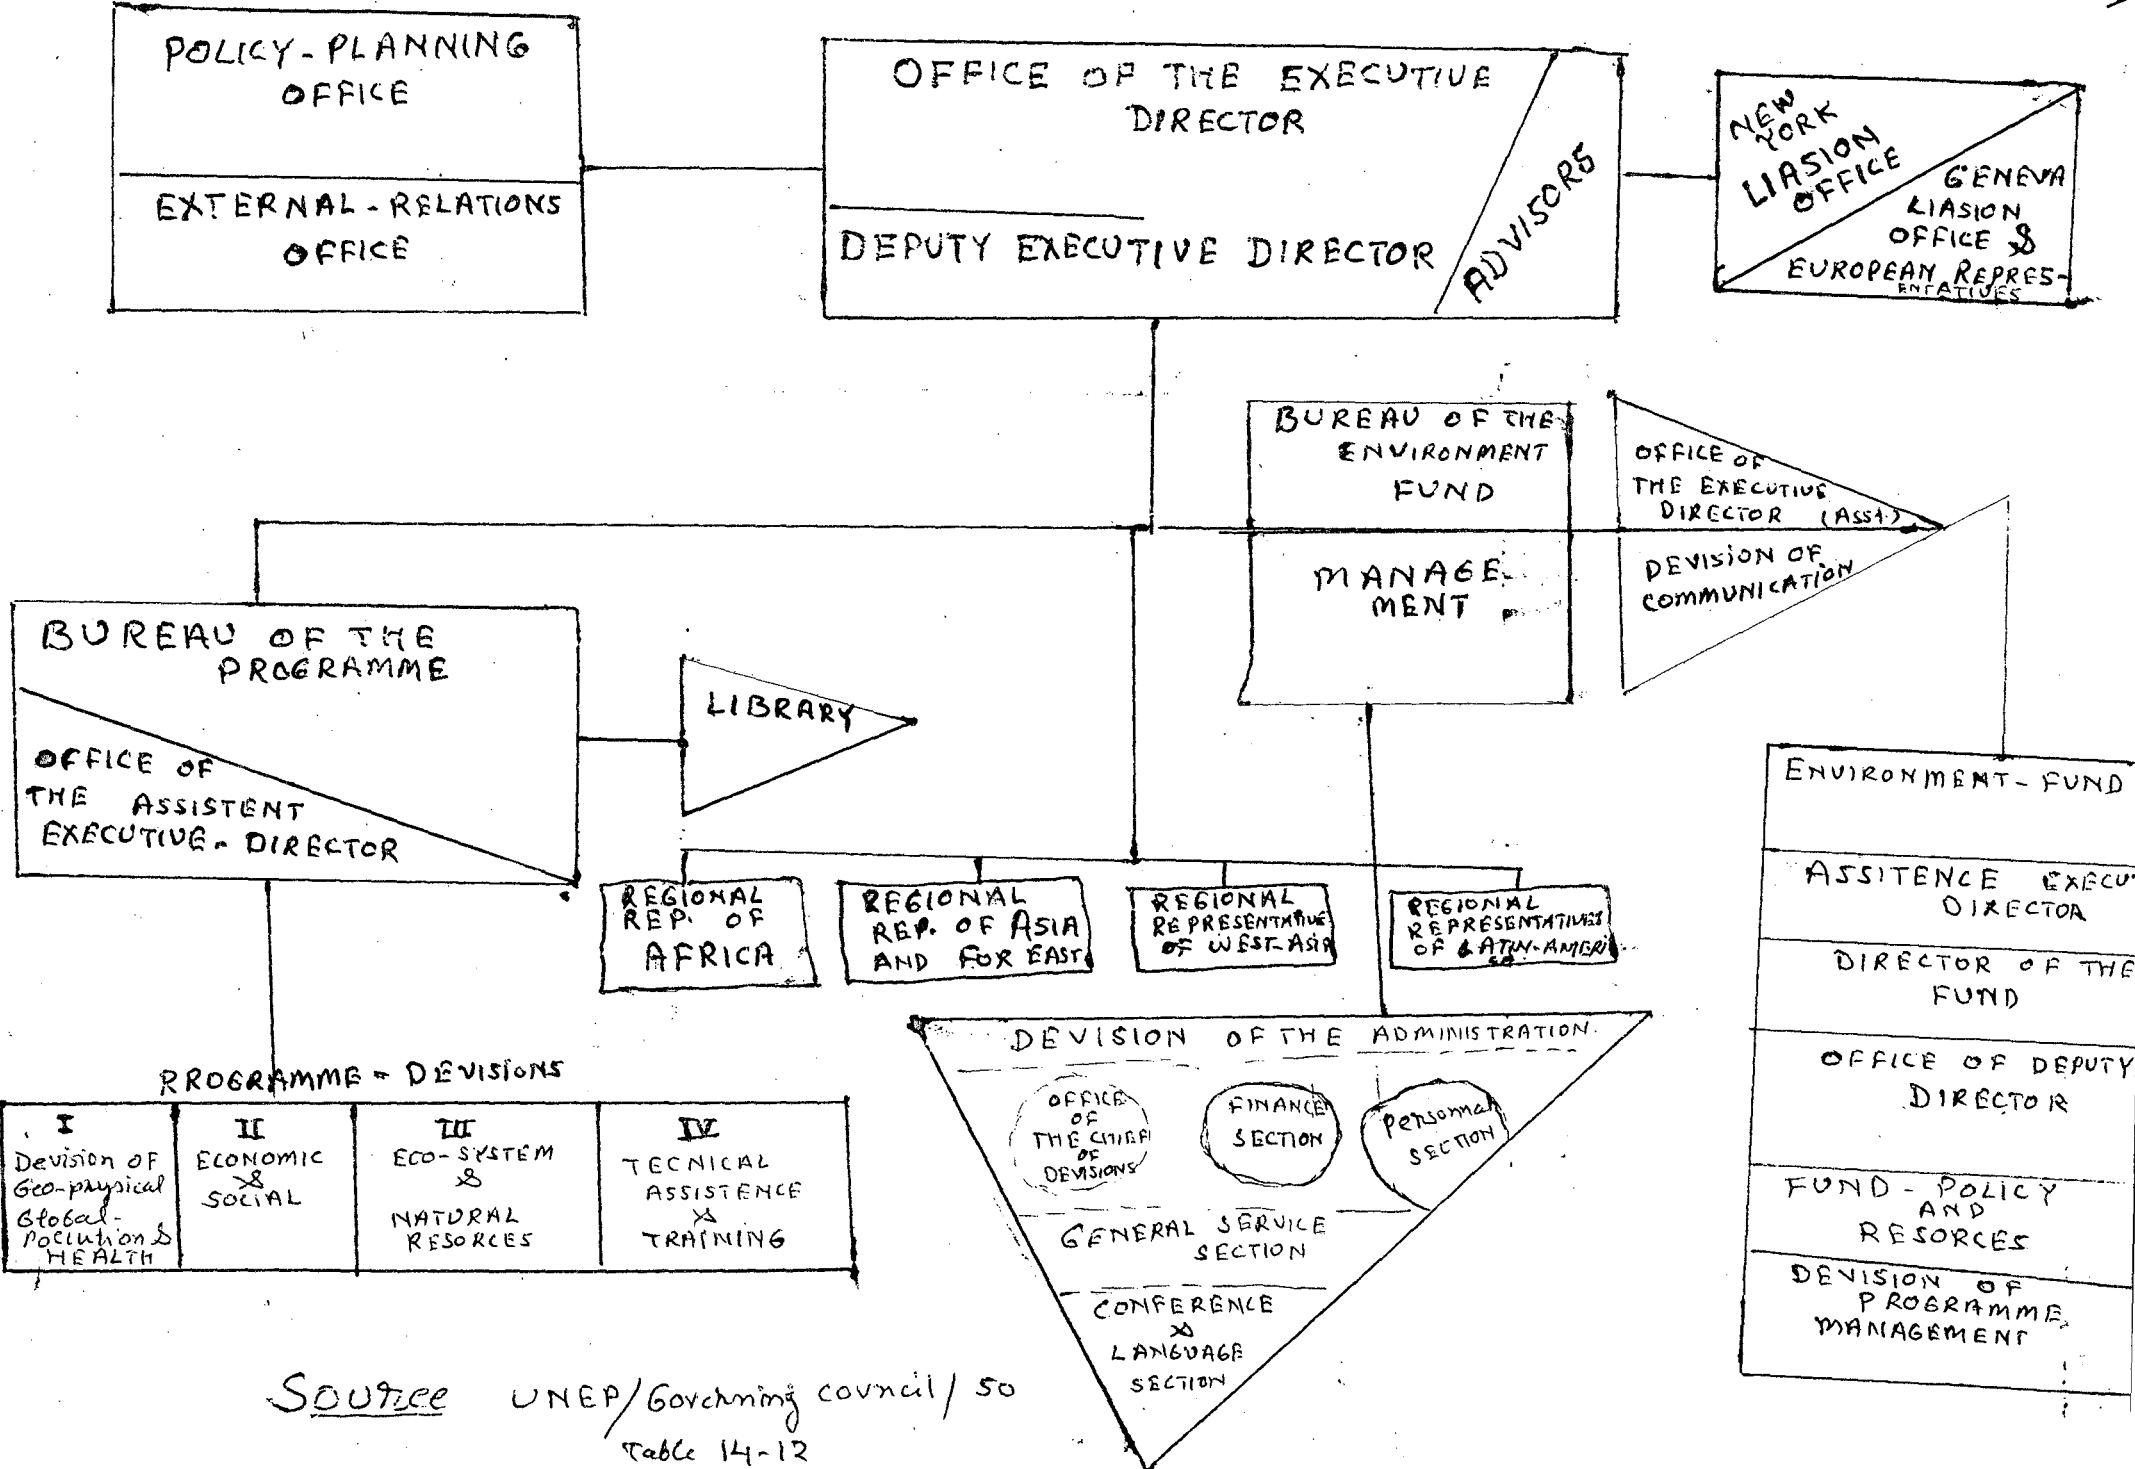 POLICY-PLANNING
OFFICE
EXTERNAL-RELATIONS
OFFICE
OFFICE OF THE EXECUTIVE
DIRECTOR
DEPUTY EXECUTIVE DIRECTOR
ADVISORS
NEW
YORK
LIASION
OFFICE
GENEVA
LIASION
OFFICE &
EUROPEAN REPRES-
ENTATIVES
BUREAU OF THE
ENVIRONMENT
FUND
MANAGE-
MENT
OFFICE OF
THE EXECUTIVE
DIRECTOR (ASST.)
DEVISION OF
COMMUNICATION
BUREAU OF THE
PROGRAMME
OFFICE OF
THE ASSISTENT
EXECUTIVE-DIRECTOR
LIBRARY
REGIONAL
REP. OF
AFRICA
REGIONAL
REP. OF ASIA
AND FOR EAST
REGIONAL
REPRESENTATIVE
OF WEST-ASIA
REGIONAL
REPRESENTATIVES
OF LATIN-AMERI
CA
ENVIRONMENT-FUND
ASSITENCE EXECUT
DIRECTOR
DIRECTOR OF THE
FUND
OFFICE OF DEPUTY
DIRECTOR
FUND-POLICY
AND
RESORCES
DEVISION OF
PROGRAMME
MANAGEMENT
PROGRAMME-DEVISIONS
I
Devision OF
Geo-physical
Global-
Pollution &
HEALTH
II
ECONOMIC
&
SOCIAL
III
ECO-SYSTEM
&
NATURAL
RESORCES
IV
TECNICAL
ASSISTENCE
&
TRAINING
DEVISION OF THE ADMINISTRATION
OFFICE
OF
THE CHIEF
OF
DEVISIONS
FINANCE
SECTION
Personnal
SECTION
GENERAL SERVICE
SECTION
CONFERENCE
&
LANGUAGE
SECTION
Source UNEP/Governing council/50
Table 14-12